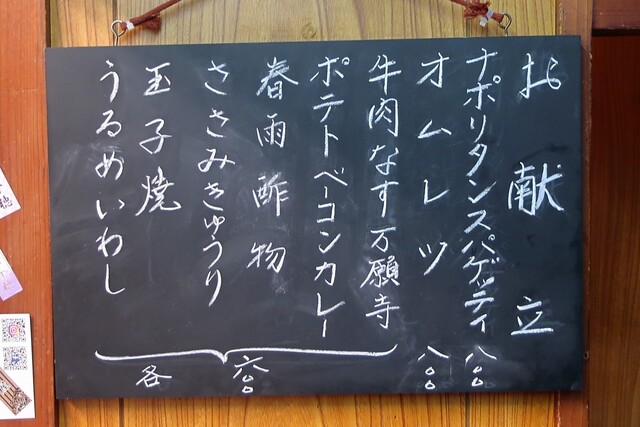 お献立
ナポリタンスパゲッティ 八〇〇
オムレツ 八〇〇
牛肉なす万願寺
ポテトベーコンカレー
春雨酢物
ささみきゅうり
玉子焼
うるめいわし
各 六〇〇